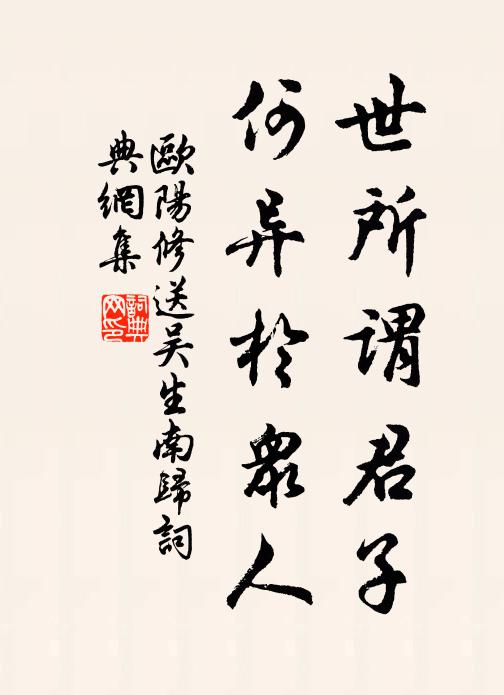 世所谓君子
何异於眾人
歐陽修送吴生南歸詞
典網集
詞典
网印